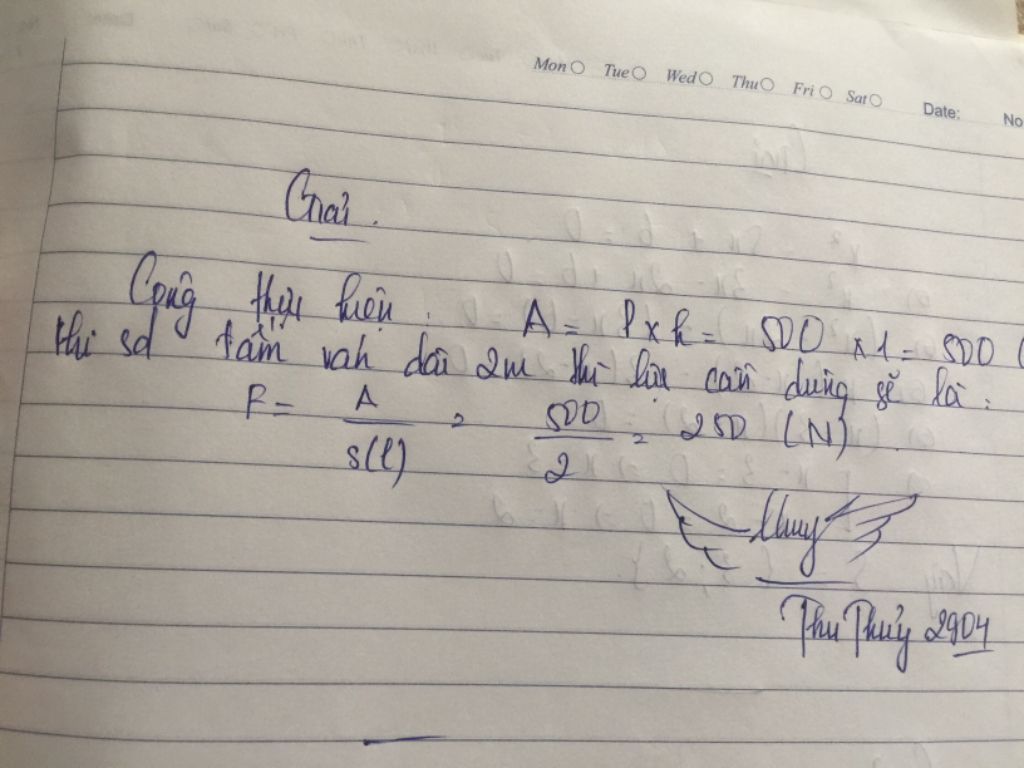 Mon Tue Wed Thu Fri Sat Date: No
Giải.
Công thực hiện: A = P x h = 500 x 1 = 500 (
Khi sd tấm ván dài 2m thì lực cần dùng sẽ là:
F = A / s(l) = 500 / 2 = 250 (N)
Thuy
Thu Thủy 2904